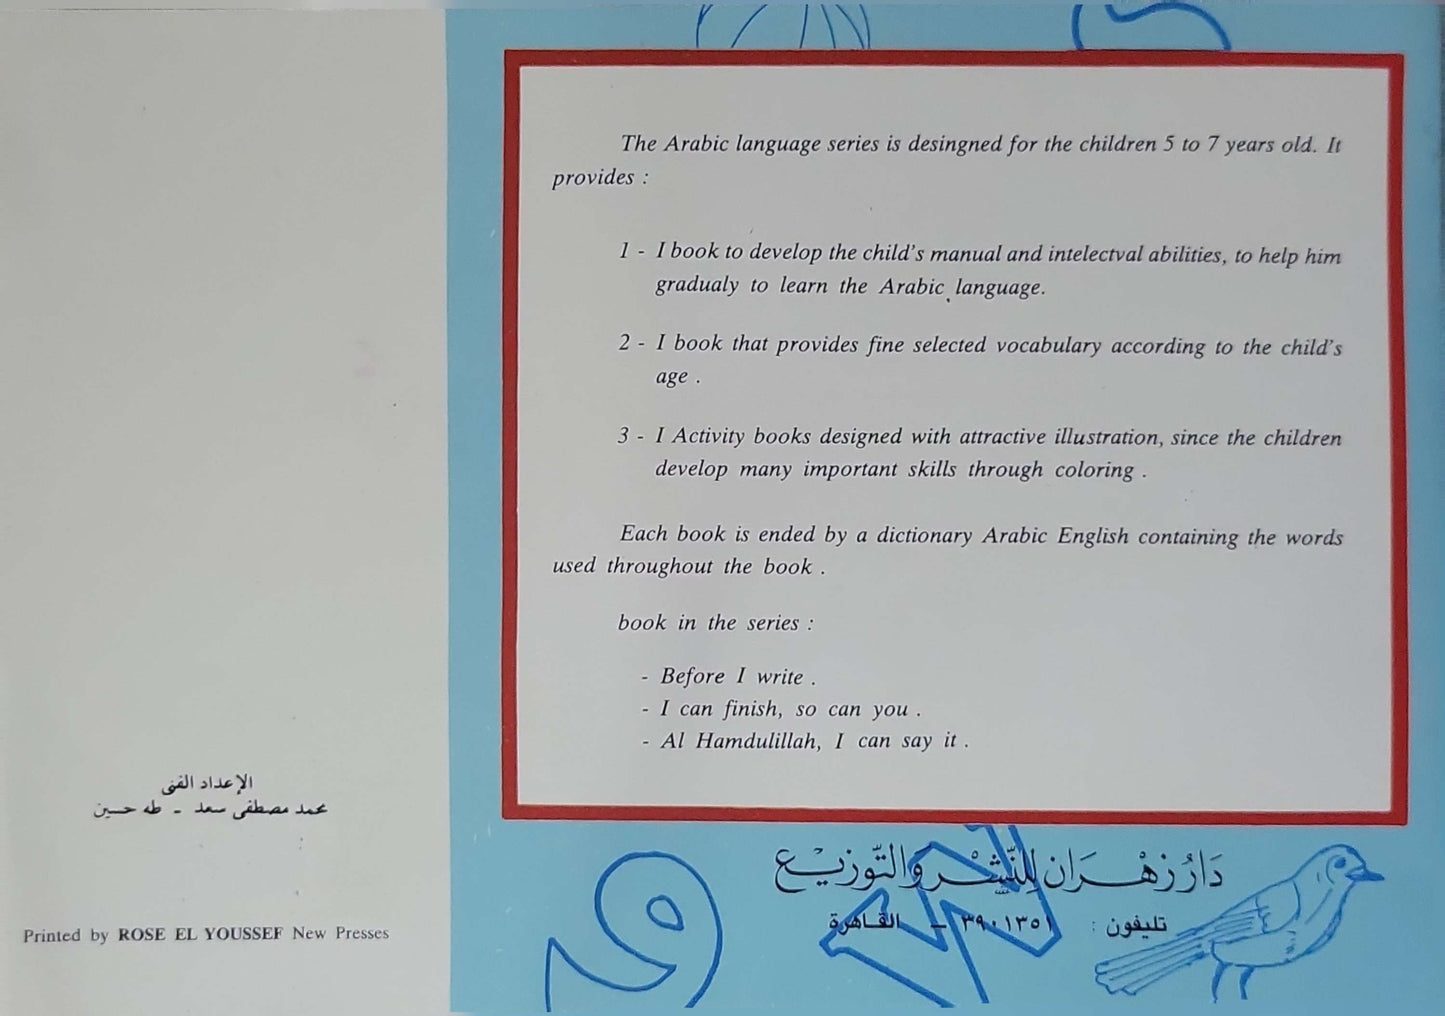 الإعداد الفنى
محمد مصطفى سعد - طه حسين
Printed by ROSE EL YOUSSEF New Presses
The Arabic language series is desingned for the children 5 to 7 years old. It
provides :
1 - I book to develop the child's manual and intelectval abilities, to help him
gradualy to learn the Arabic language.
2 - I book that provides fine selected vocabulary according to the child's
age .
3 - I Activity books designed with attractive illustration, since the children
develop many important skills through coloring .
Each book is ended by a dictionary Arabic English containing the words
used throughout the book .
book in the series :
- Before I write .
- I can finish, so can you .
- Al Hamdulillah, I can say it .
دَارُ زهْرَان لِلنّشْر وَالتّوزيْع
تليفون : ٣٩٠١٣٥١ - القاهرة
و